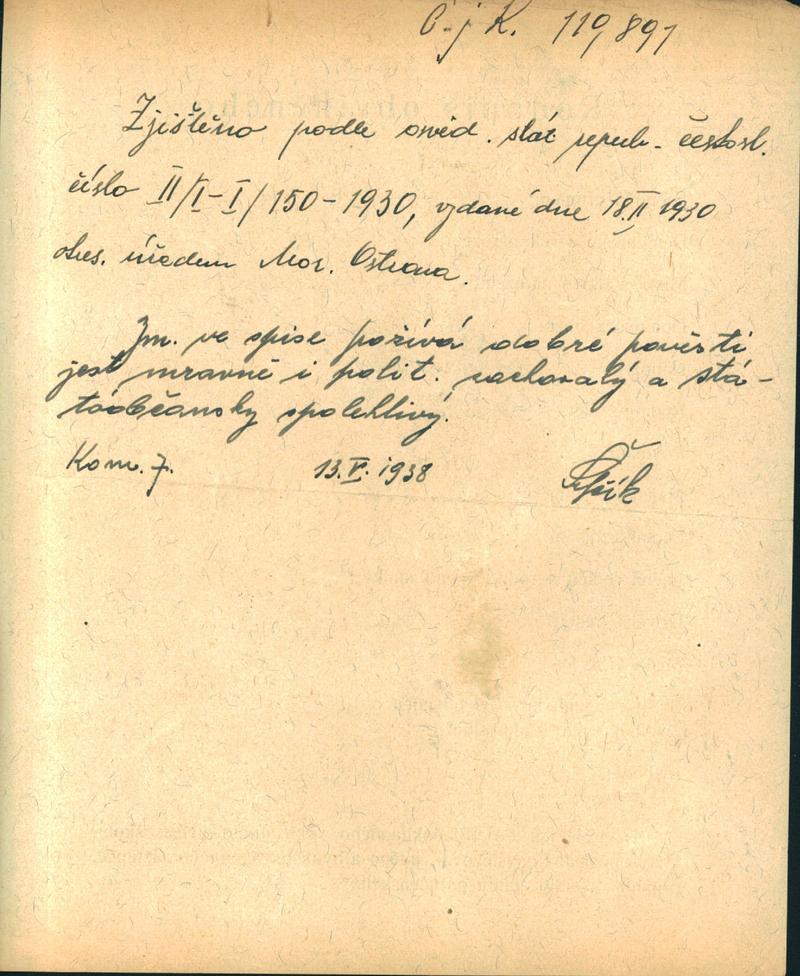 Č. j. K. 119,891
Zjištěno podle osvěd. stát repub. českosl.
číslo II/I-I/150-1930, vydané dne 18.II 1930
okres. úřadem Mor. Ostrava.
Jm. ve spise požívá dobré pověsti
jest mravně i polit. zachovalý a stá-
toobčansky spolehlivý.
Kom. 7. 13.V. 1938